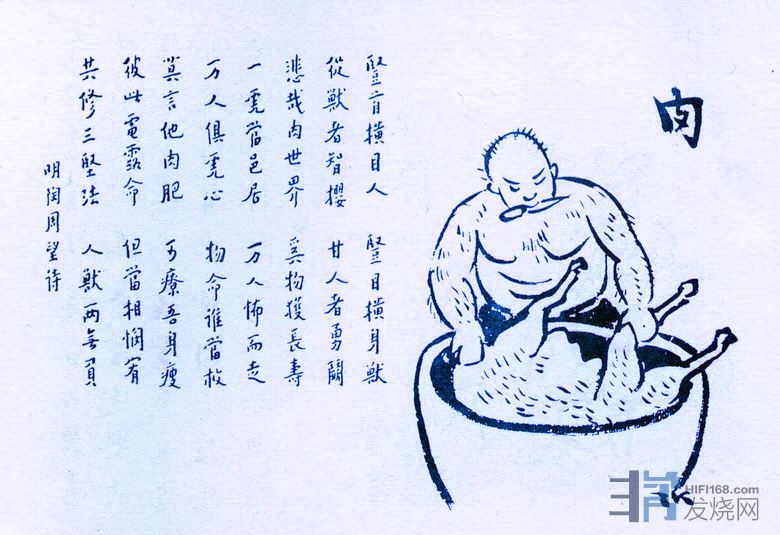 肉
豎首橫目人 豎目橫身獸
從獸者智攖 甘人者勇鬪
悲哉肉世界 奚物獲長壽
一虎當邑居 万人怖而走
万人俱虎心 物命誰當救
莫言他肉肥 可療吾身瘦
彼此電露命 但當相憫宥
共修三堅法 人獸兩無負
明陶周望詩
HIFI168.com
发烧网